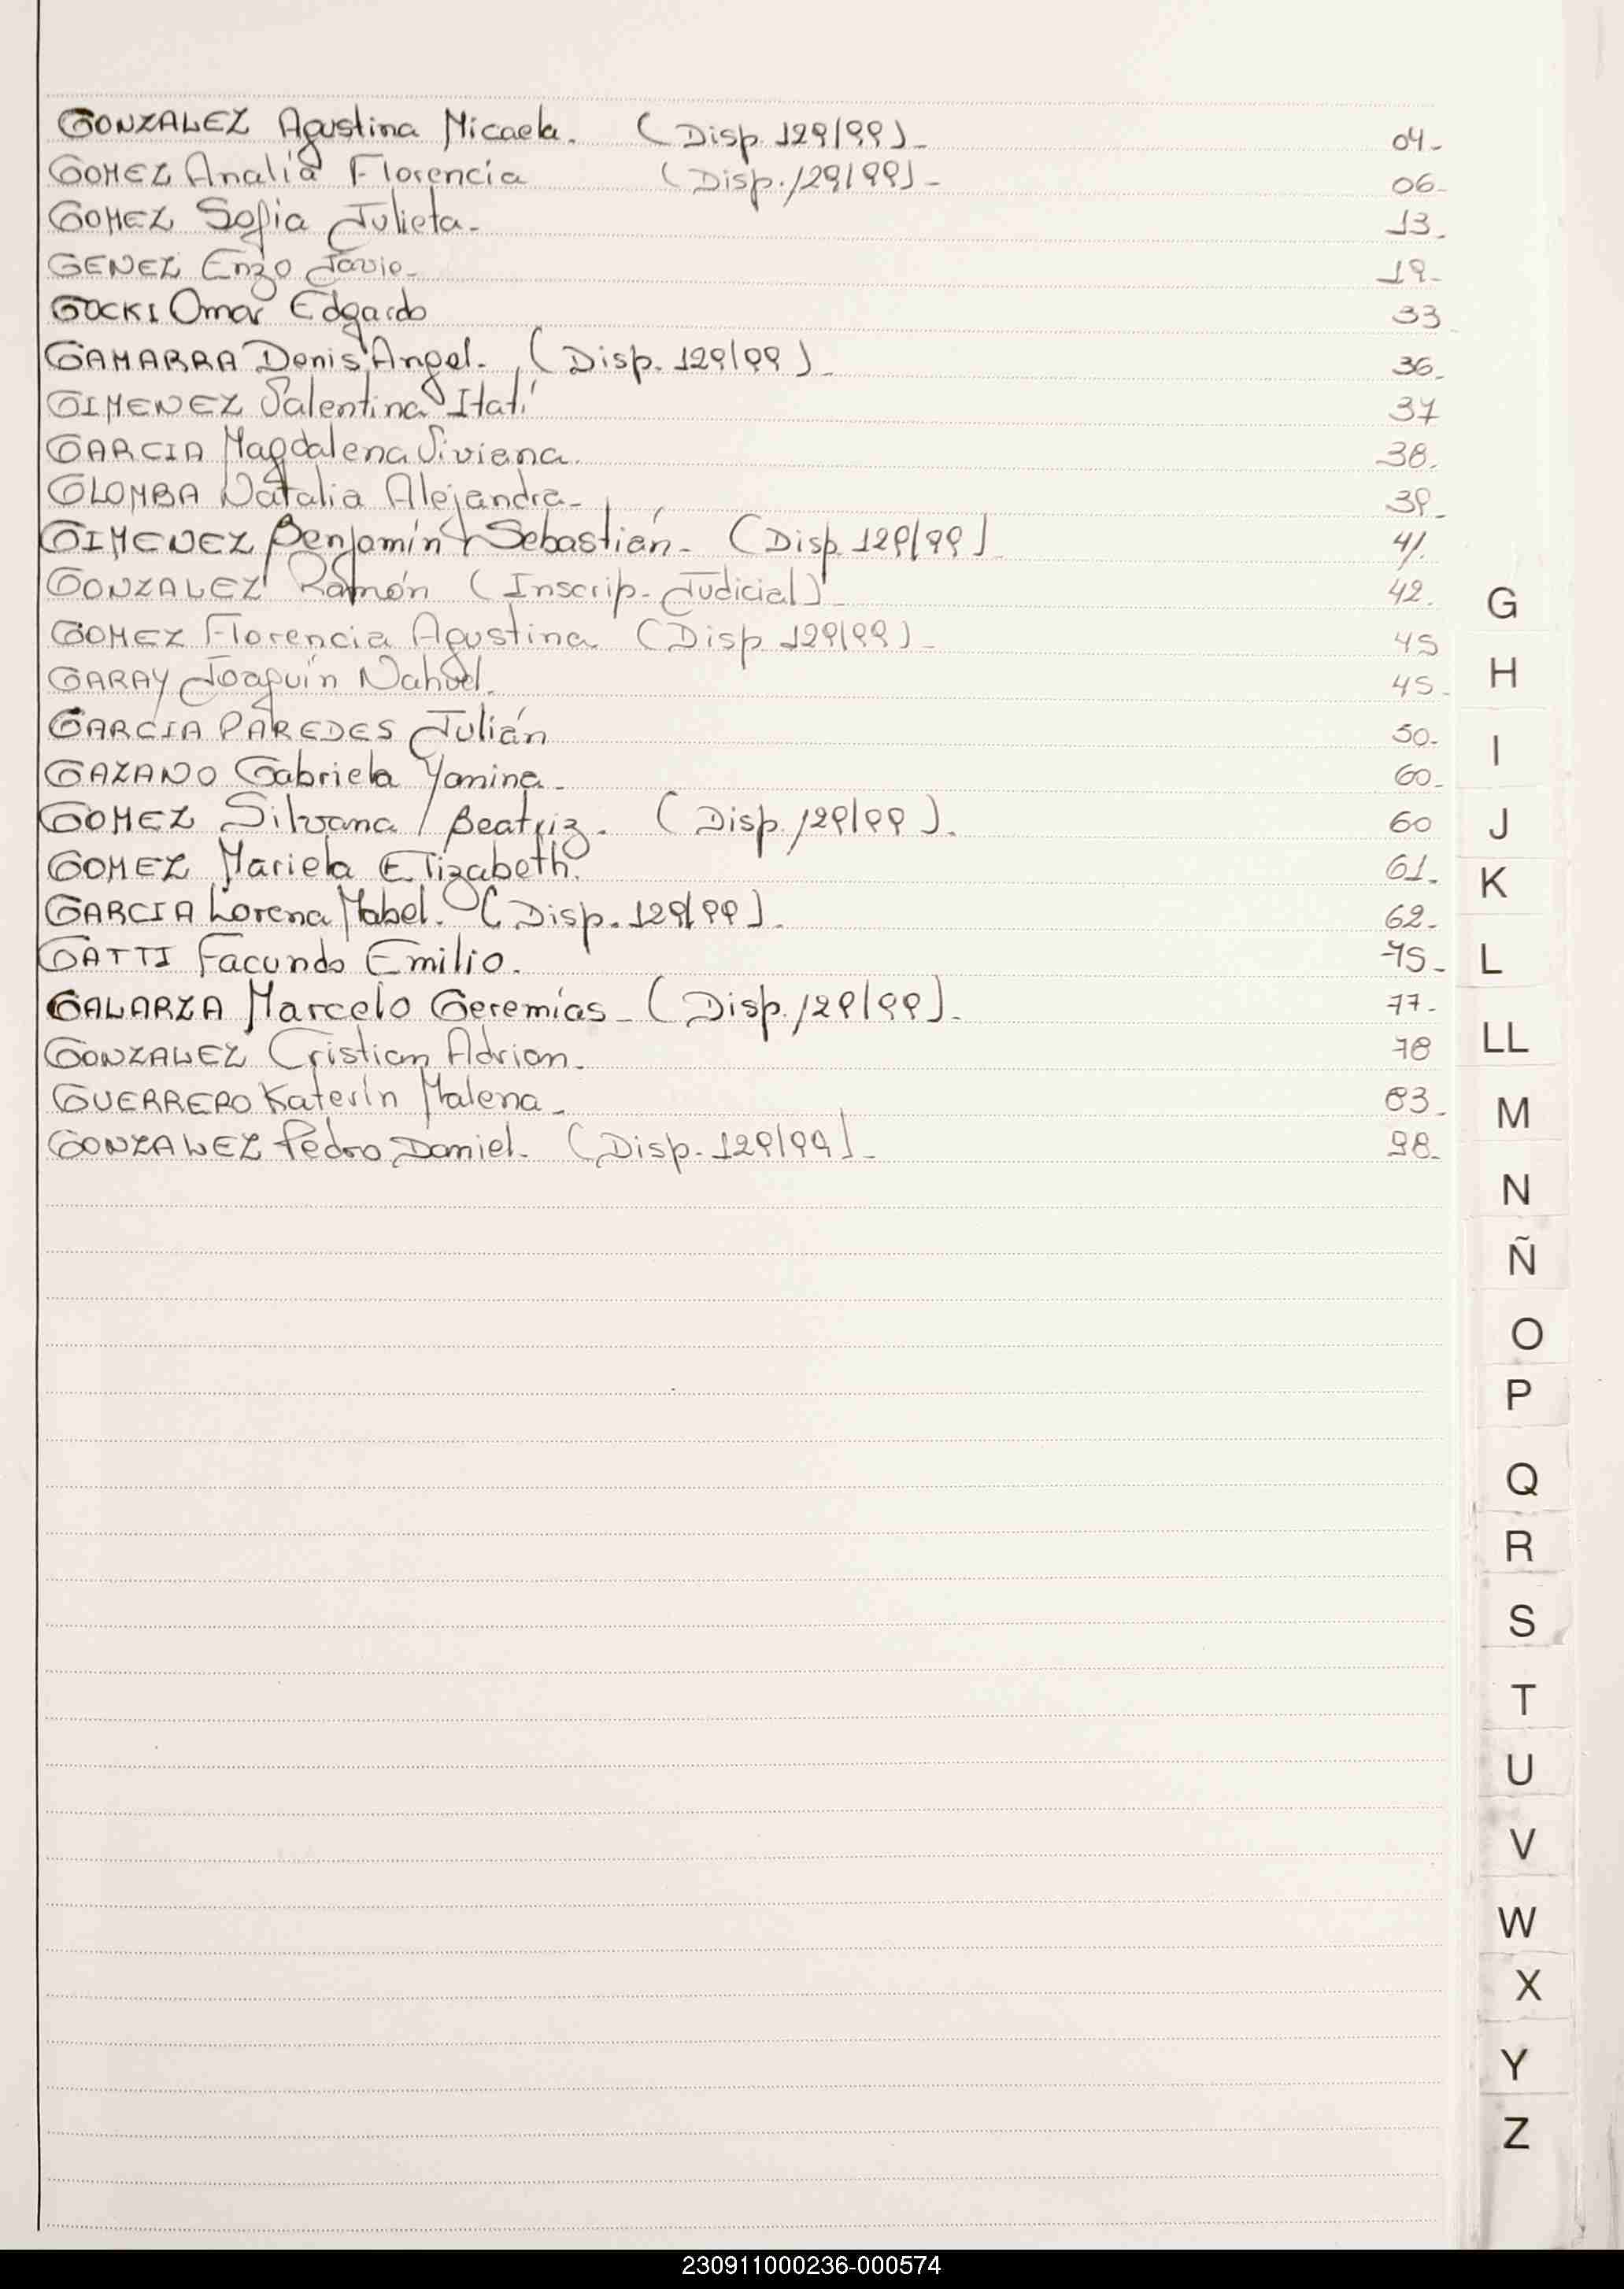 GONZALEZ Agustina Micaela. (Disp. 129/99)_ 04_
GOMEZ Analía Florencia (Disp. 129/99)_ 06_
GOMEZ Sofia Julieta_ 13_
GENEZ Enzo Javie_ 19_
GOCKI Omar Edgardo 33
GAMARRA Denis Angel. (Disp. 129/99)_ 36_
GIMENEZ Valentina Itatí 37
GARCIA Magdalena Viviana. 38.
GLOMBA Natalia Alejandra_ 39_
GIMENEZ Benjamín Sebastián_ (Disp. 129/99) 41.
GONZALEZ Ramón (Inscrip. Judicial)_ 42.
GOMEZ Florencia Agustina (Disp 129/99)_ 45
GARAY Joaquín Nahuel. 45_
GARCIA PAREDES Julián 50_
GAZANO Gabriela Yanina_ 60_
GOMEZ Silvana Beatriz. (Disp. 129/99). 60
GOMEZ Mariela Elizabeth. 61_
GARCIA Lorena Mabel. (Disp. 129/99)_ 62_
GATTI Facundo Emilio. 75_
GALARZA Marcelo Geremías_ (Disp. 129/99)_ 77_
GONZALEZ Cristian Adrian_ 78
GUERRERO Katerín Malena_ 83_
GONZALEZ Pedro Daniel_ (Disp. 129/99)_ 98_
G
H
I
J
K
L
LL
M
N
Ñ
O
P
Q
R
S
T
U
V
W
X
Y
Z
230911000236-000574